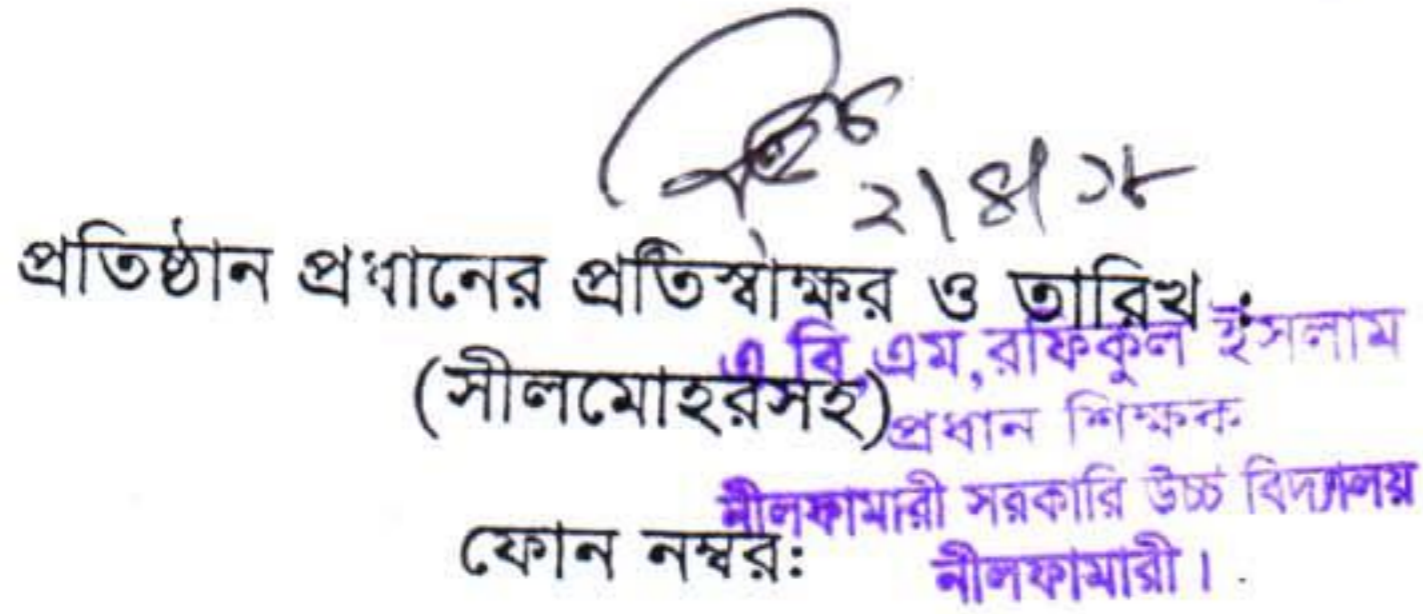 ২|৪|১৮
প্রতিষ্ঠান প্রধানের প্রতিস্বাক্ষর ও তারিখ :
(সীলমোহরসহ)
এ, বি, এম, রফিকুল ইসলাম
প্রধান শিক্ষক
নীলফামারী সরকারি উচ্চ বিদ্যালয়
নীলফামারী।
ফোন নম্বর: